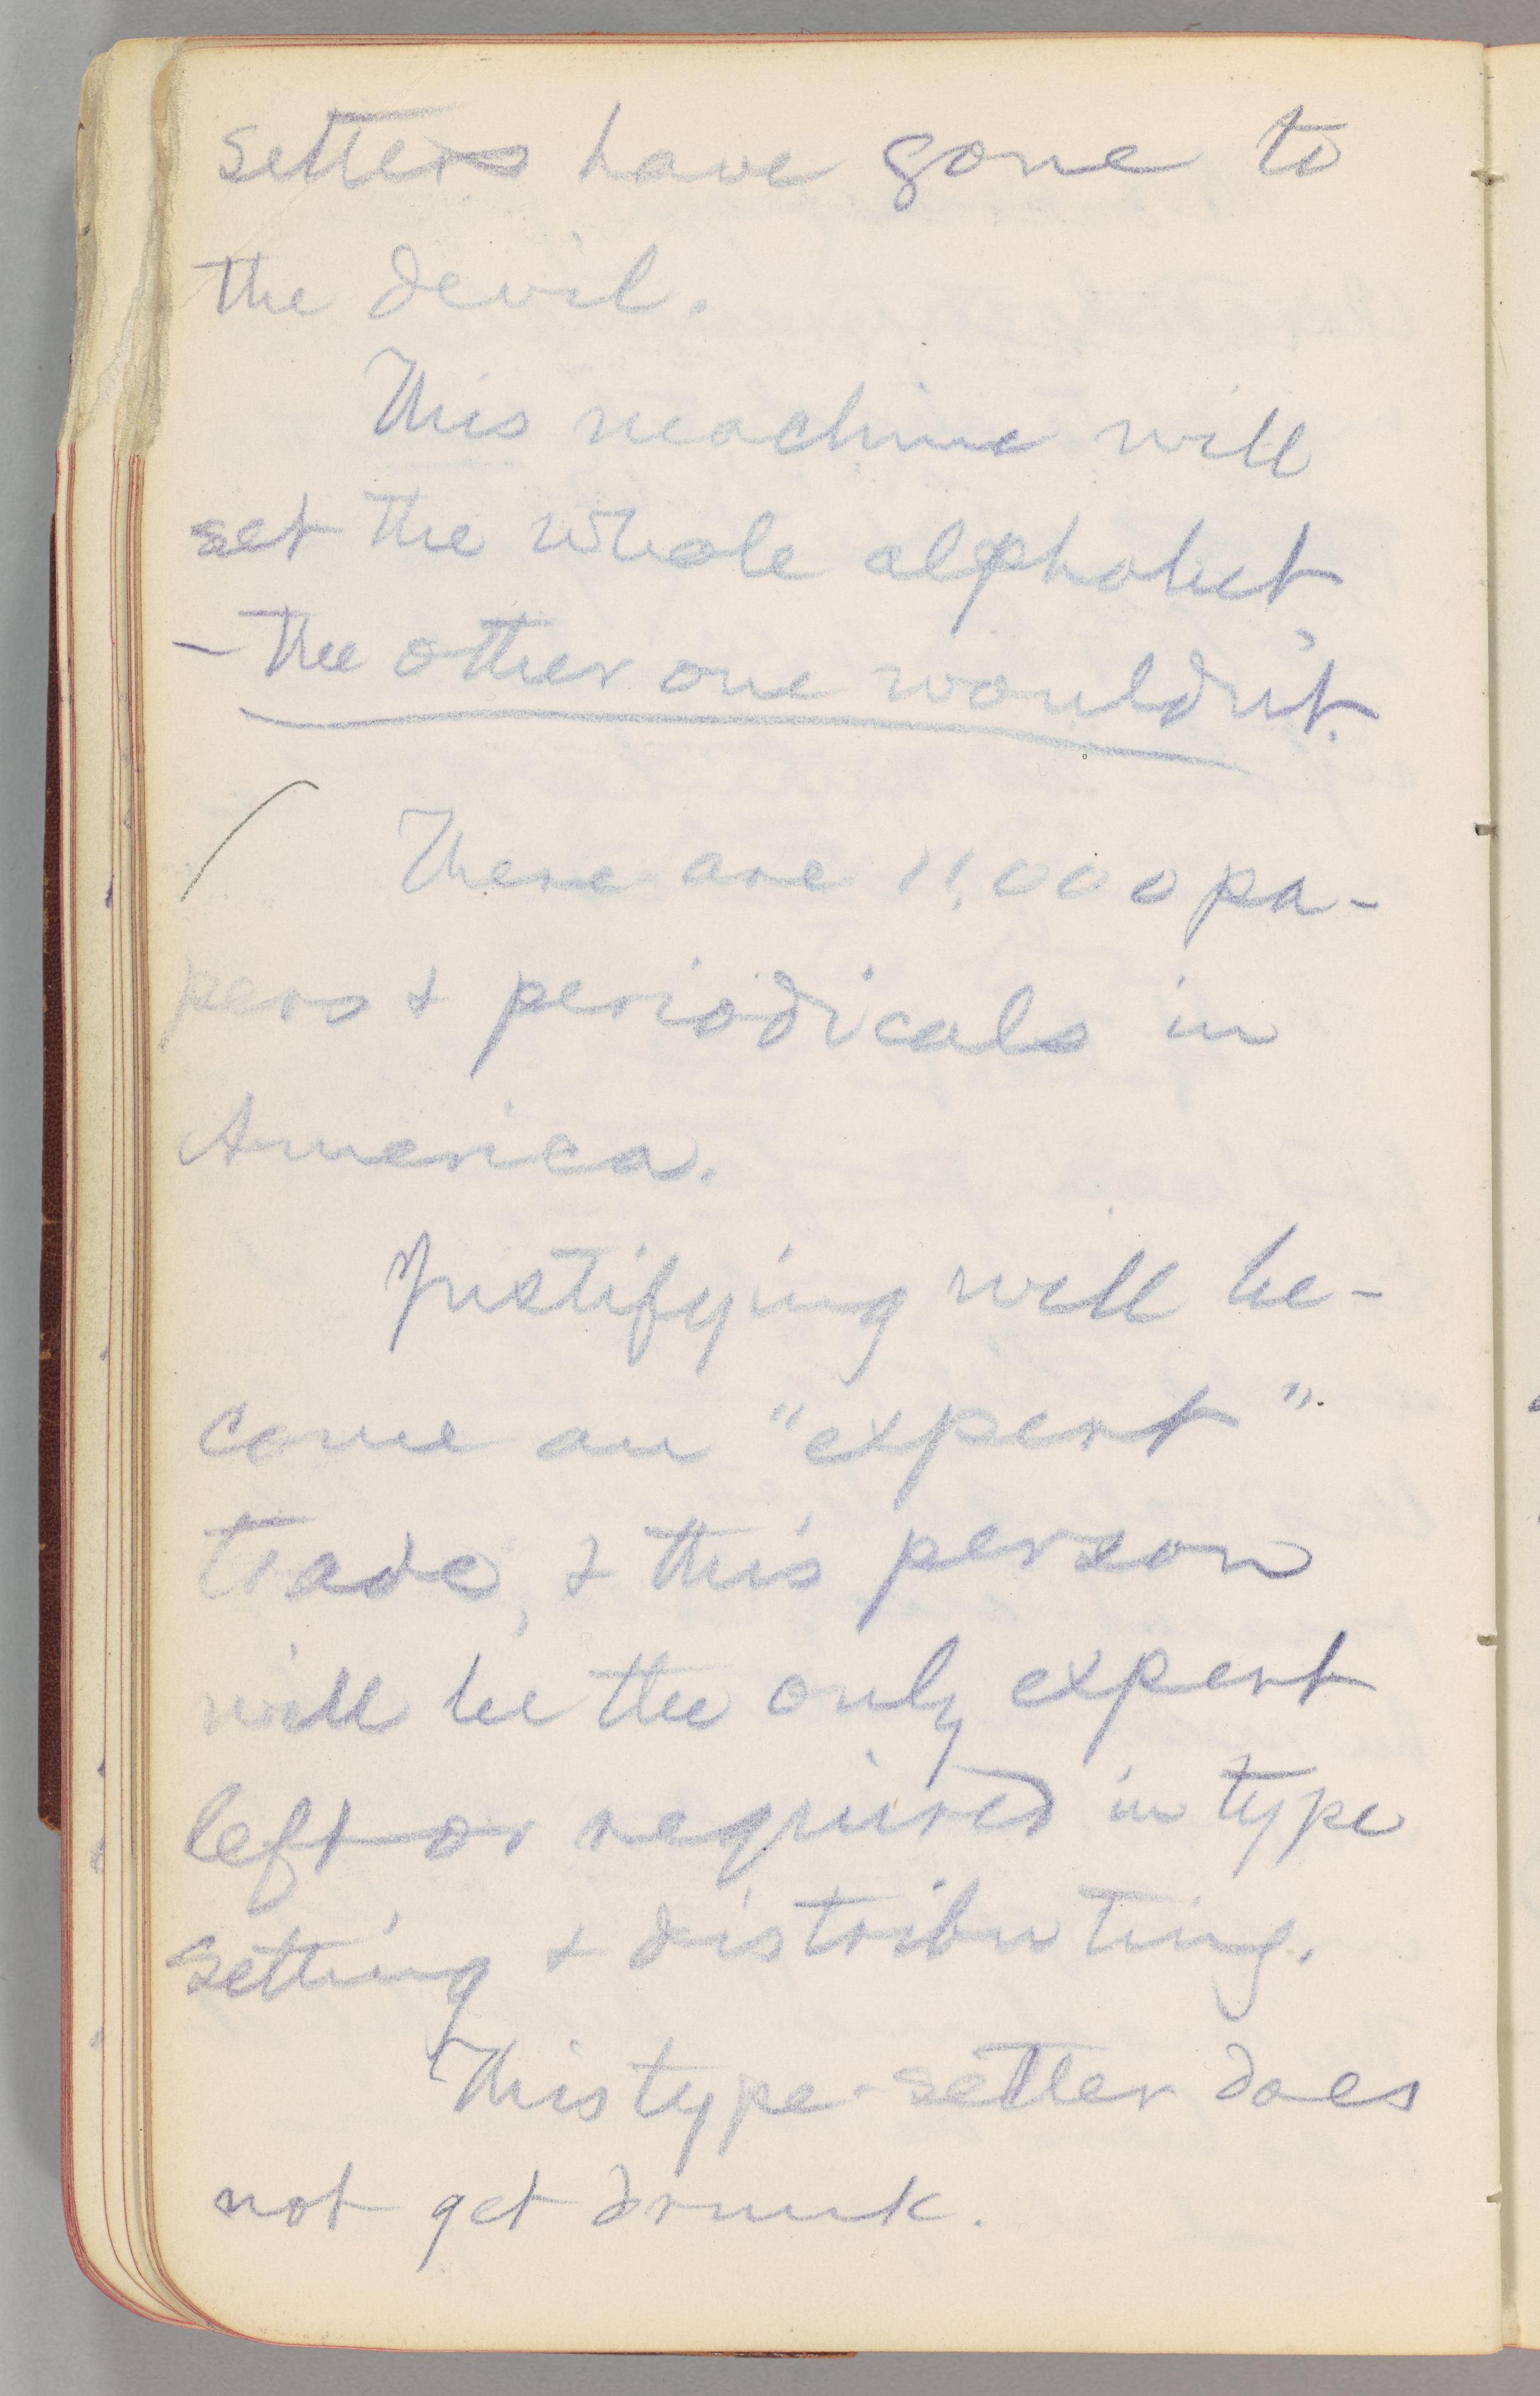 setters have gone to
the devil.
This machine will
set the whole alphabet
– the other one wouldn't.
There are 11,000 pa-
pers & periodicals in
America.
Justifying will be-
come an "expert"
trade, & this person
will be the only expert
left or required in type
setting & distributing.
This type-setter does
not get drunk.